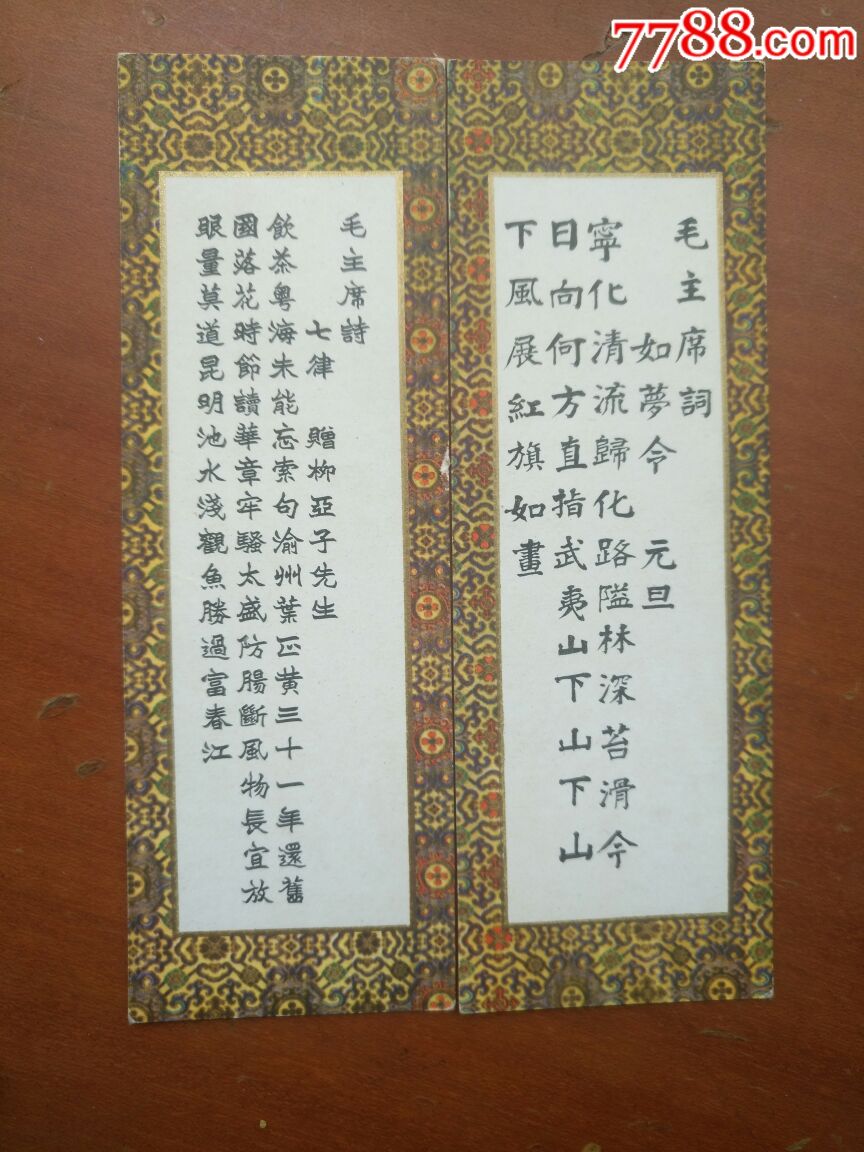 7788.com
毛主席詞
如夢令 元旦
寧化清流歸化路隘林深苔滑今
日向何方直指武夷山下山下山
下風展紅旗如畫
毛主席詩
七律 贈柳亞子先生
飲茶粵海未能忘索句渝州葉正黄三十一年還舊
國落花時節讀華章牢騷太盛防腸斷風物長宜放
眼量莫道昆明池水淺觀魚勝過富春江